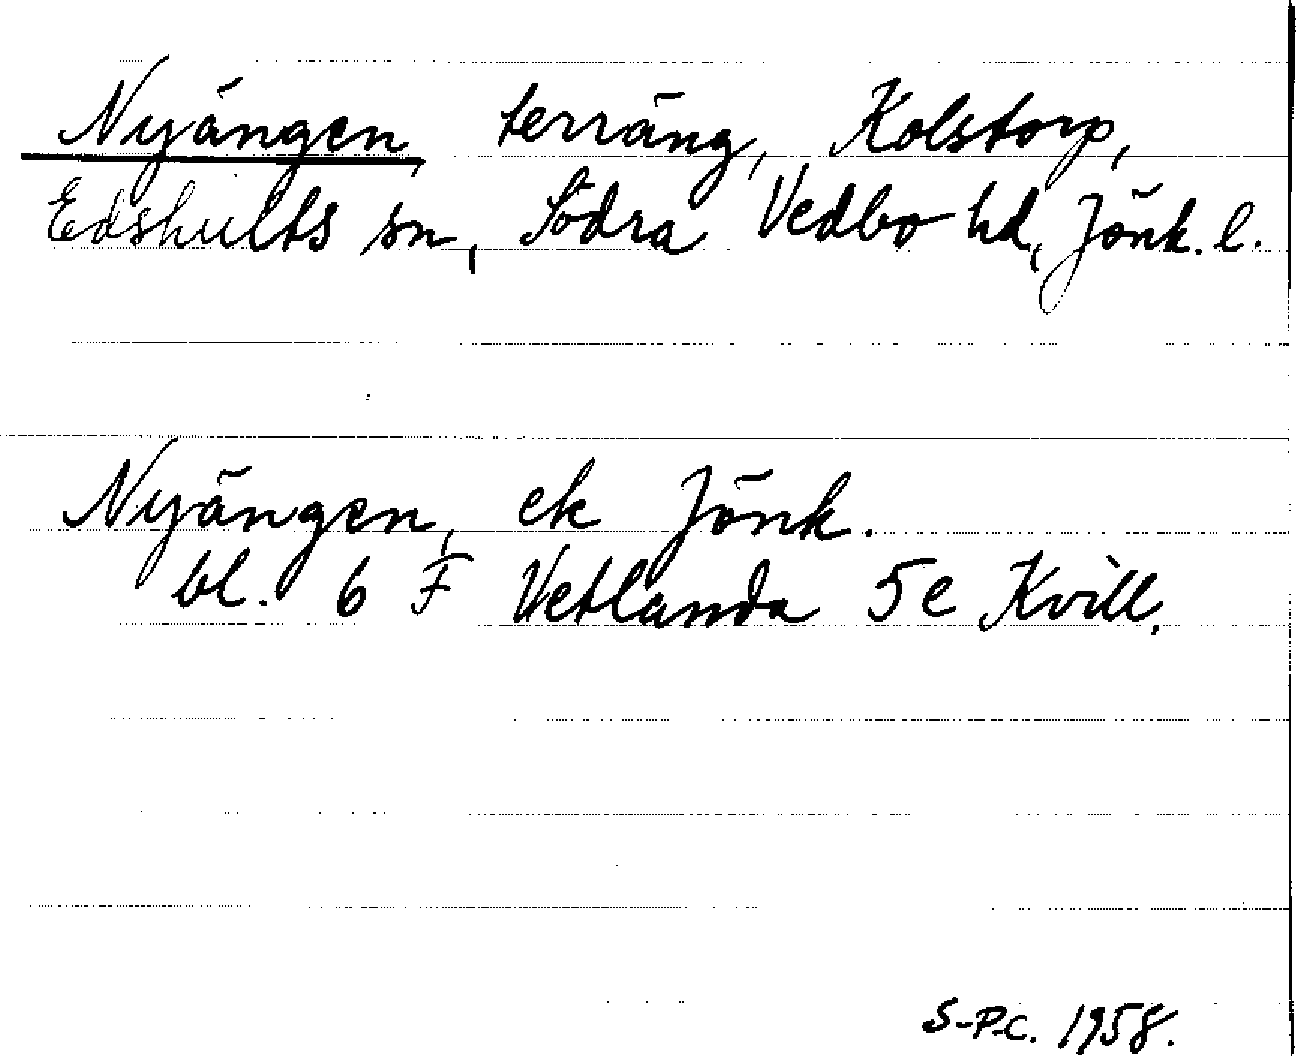 Nyängen, terräng, Kolstorp,
Edshults sn, Södra Vedbo hd, Jönk. l.
Nyängen, ek Jönk.
bl. 6 F Vetlanda 5e Kvill.
S-P-C. 1958.